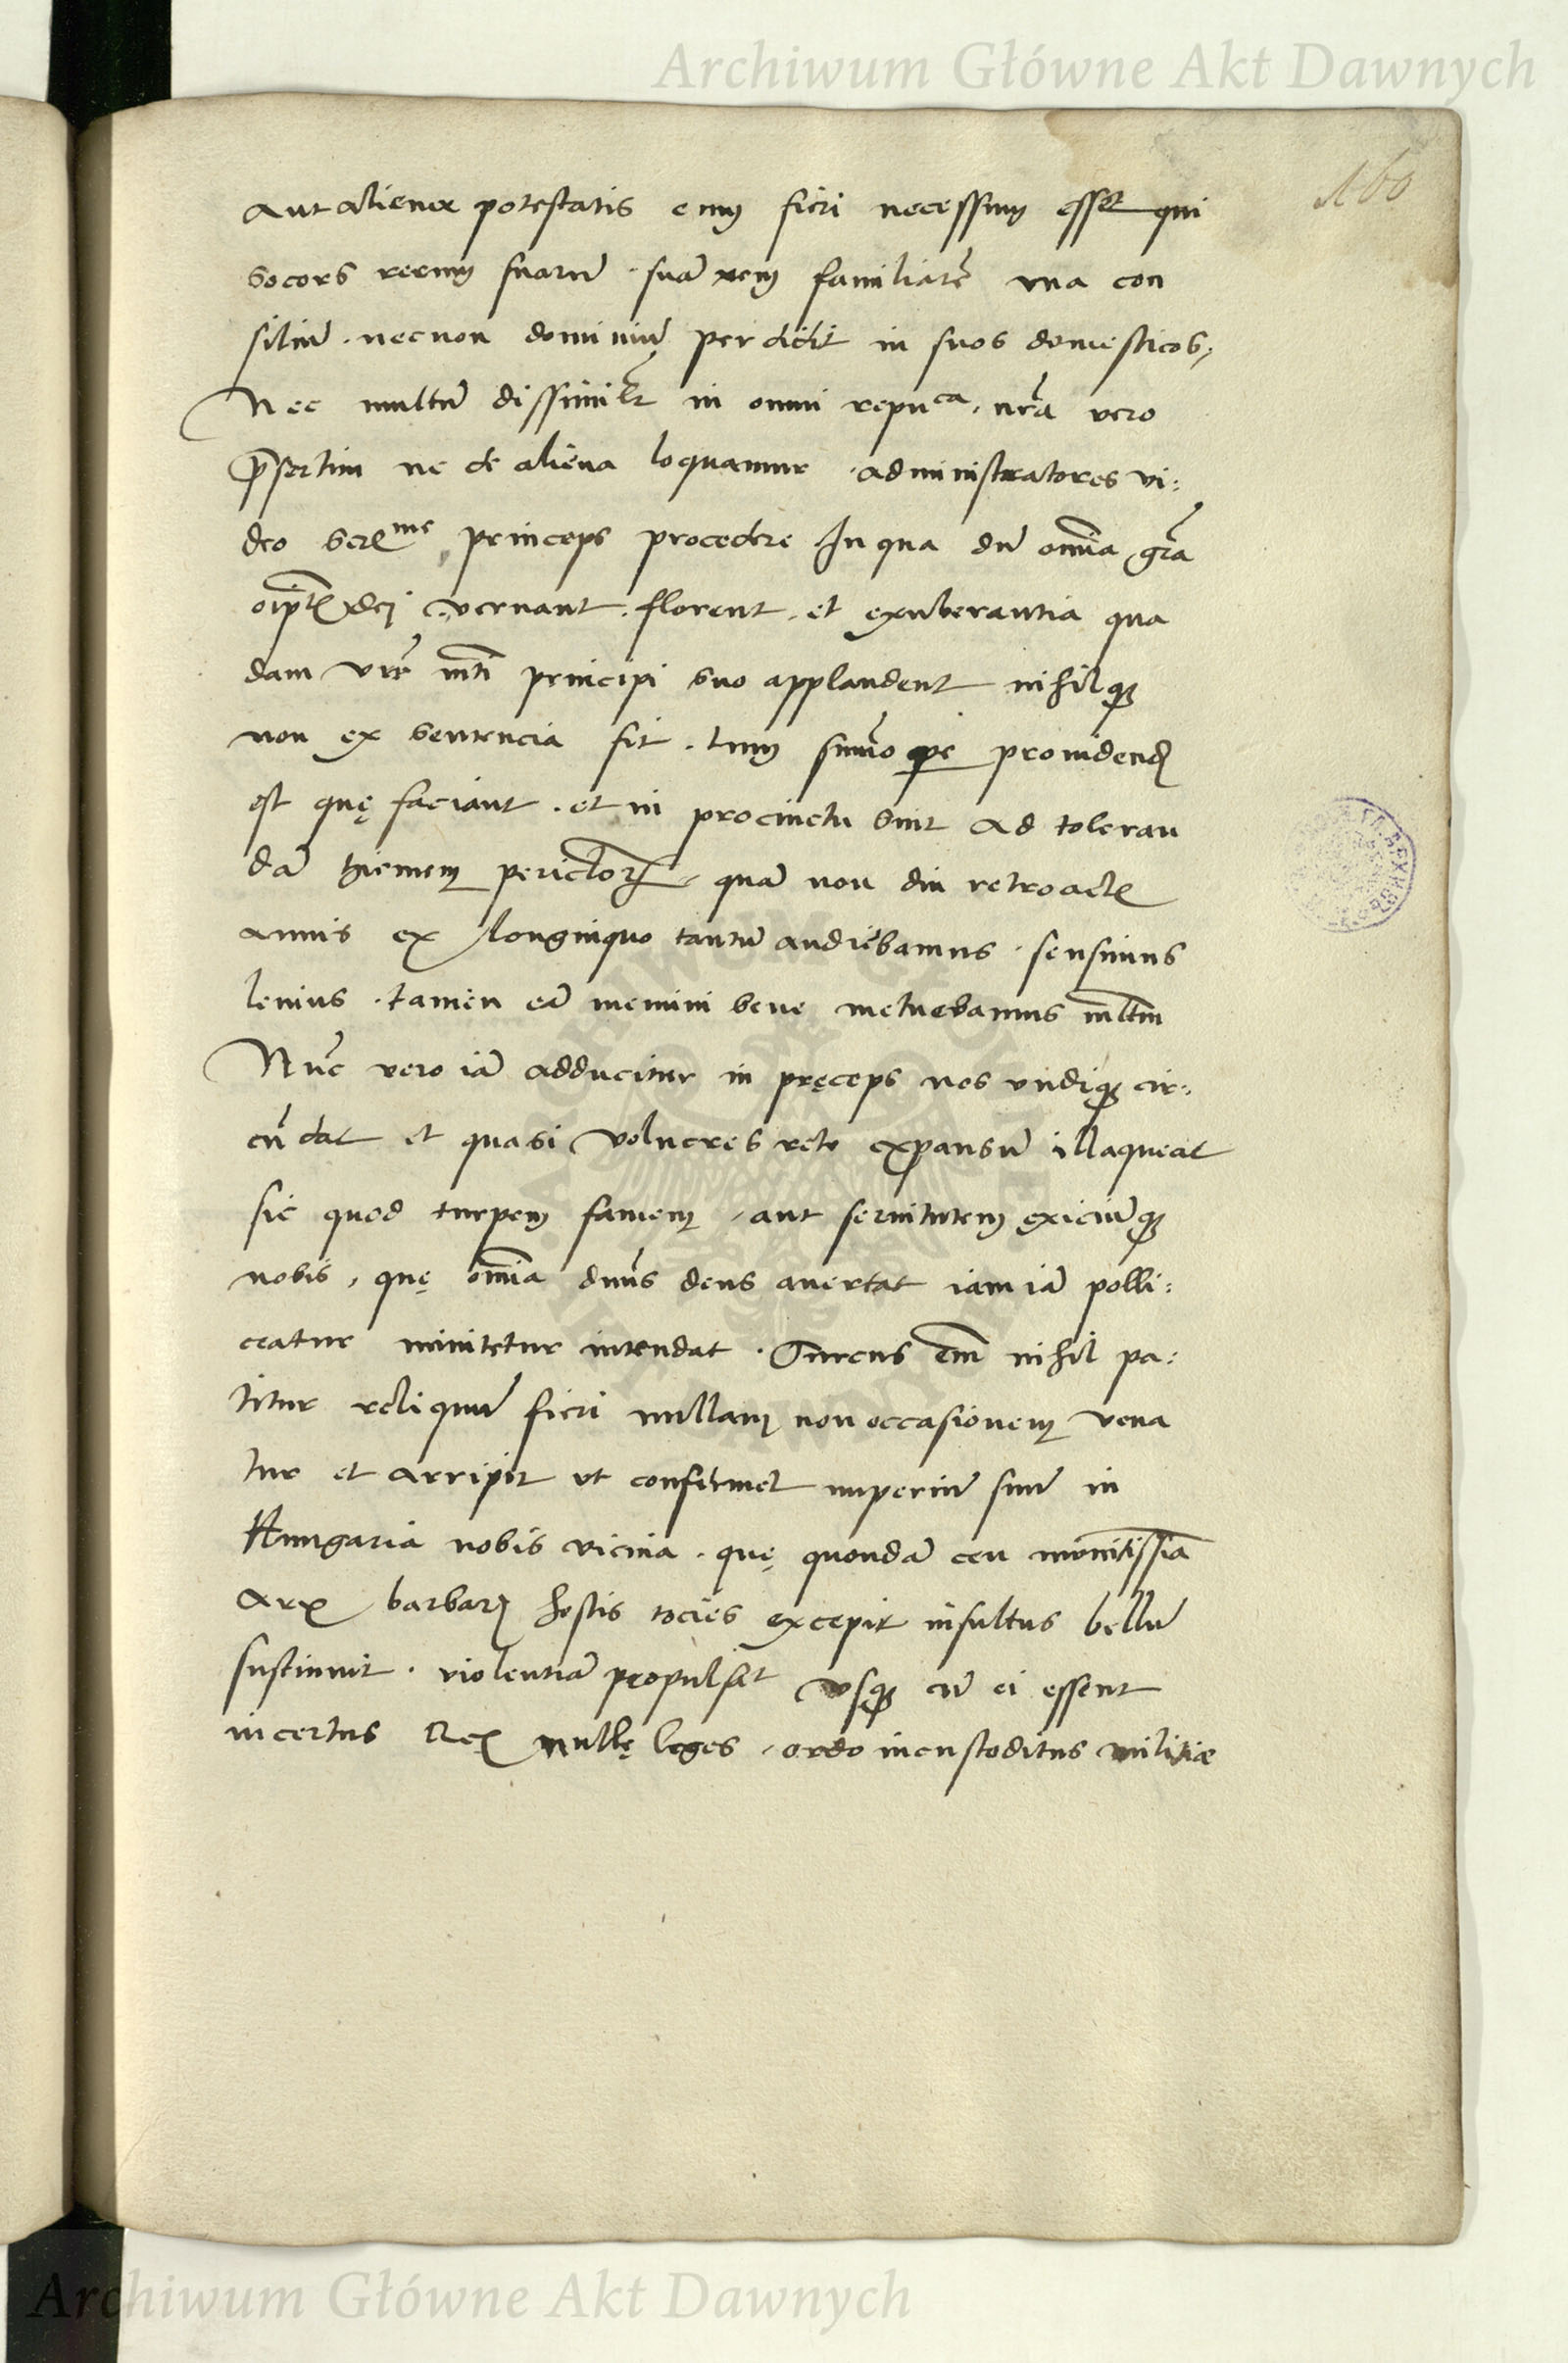 Archiwum Główne Akt Dawnych
160
aut alienæ potestatis eum fieri necessum esset qui
socors rerum suarū · suā rem familiarē una con
siliū · necnon dominiū perdidit in suos domesticos,
Nec multū dissimilr̄ in omni repu^ca, nrā vero
p̄sertim ne de aliena loquamur · administratores vi:
deo Ser^me princeps procedere In qua dū om̄ia grā
dei vernant · florent · et exuberantia qua
dam vrē mti principi suo applaudent nihilq3
non ex sentencia fit · tum sum̄o pe providend
est quę faciant · et in procinctu sint ad toleran
dā hiemem quā non diu retroacte
annis ex longinquo tantū audiebamus · sensimus
lenius · tamen eā memini bene metuebamus mltm̄
Nūc vero iā adducitur in pręceps nos undiq3 cir:
cūdat et quasi volucres rete expansū illaqueat
sic quod turpem famem, aut servitutem exiciūq3
nobis, quę om̄ia dn̄us deus avertat iam iā polli:
ceatur minitetur intendat · Turcus em̄ nihil pa:
titur reliquū fieri nullam non occasionem vena
tur et arripit ut confirmet imperiū suū in
Hungaria nobis vicina · quę quondā ceu munitissīa
arx barbari hostis tocies excepit insultus bellū
sustinuit · violentiā propulsat usq3 cū ei essent
incertus Rex nullę leges, ordo incustoditus militiæ
Archiwum Główne Akt Dawnych